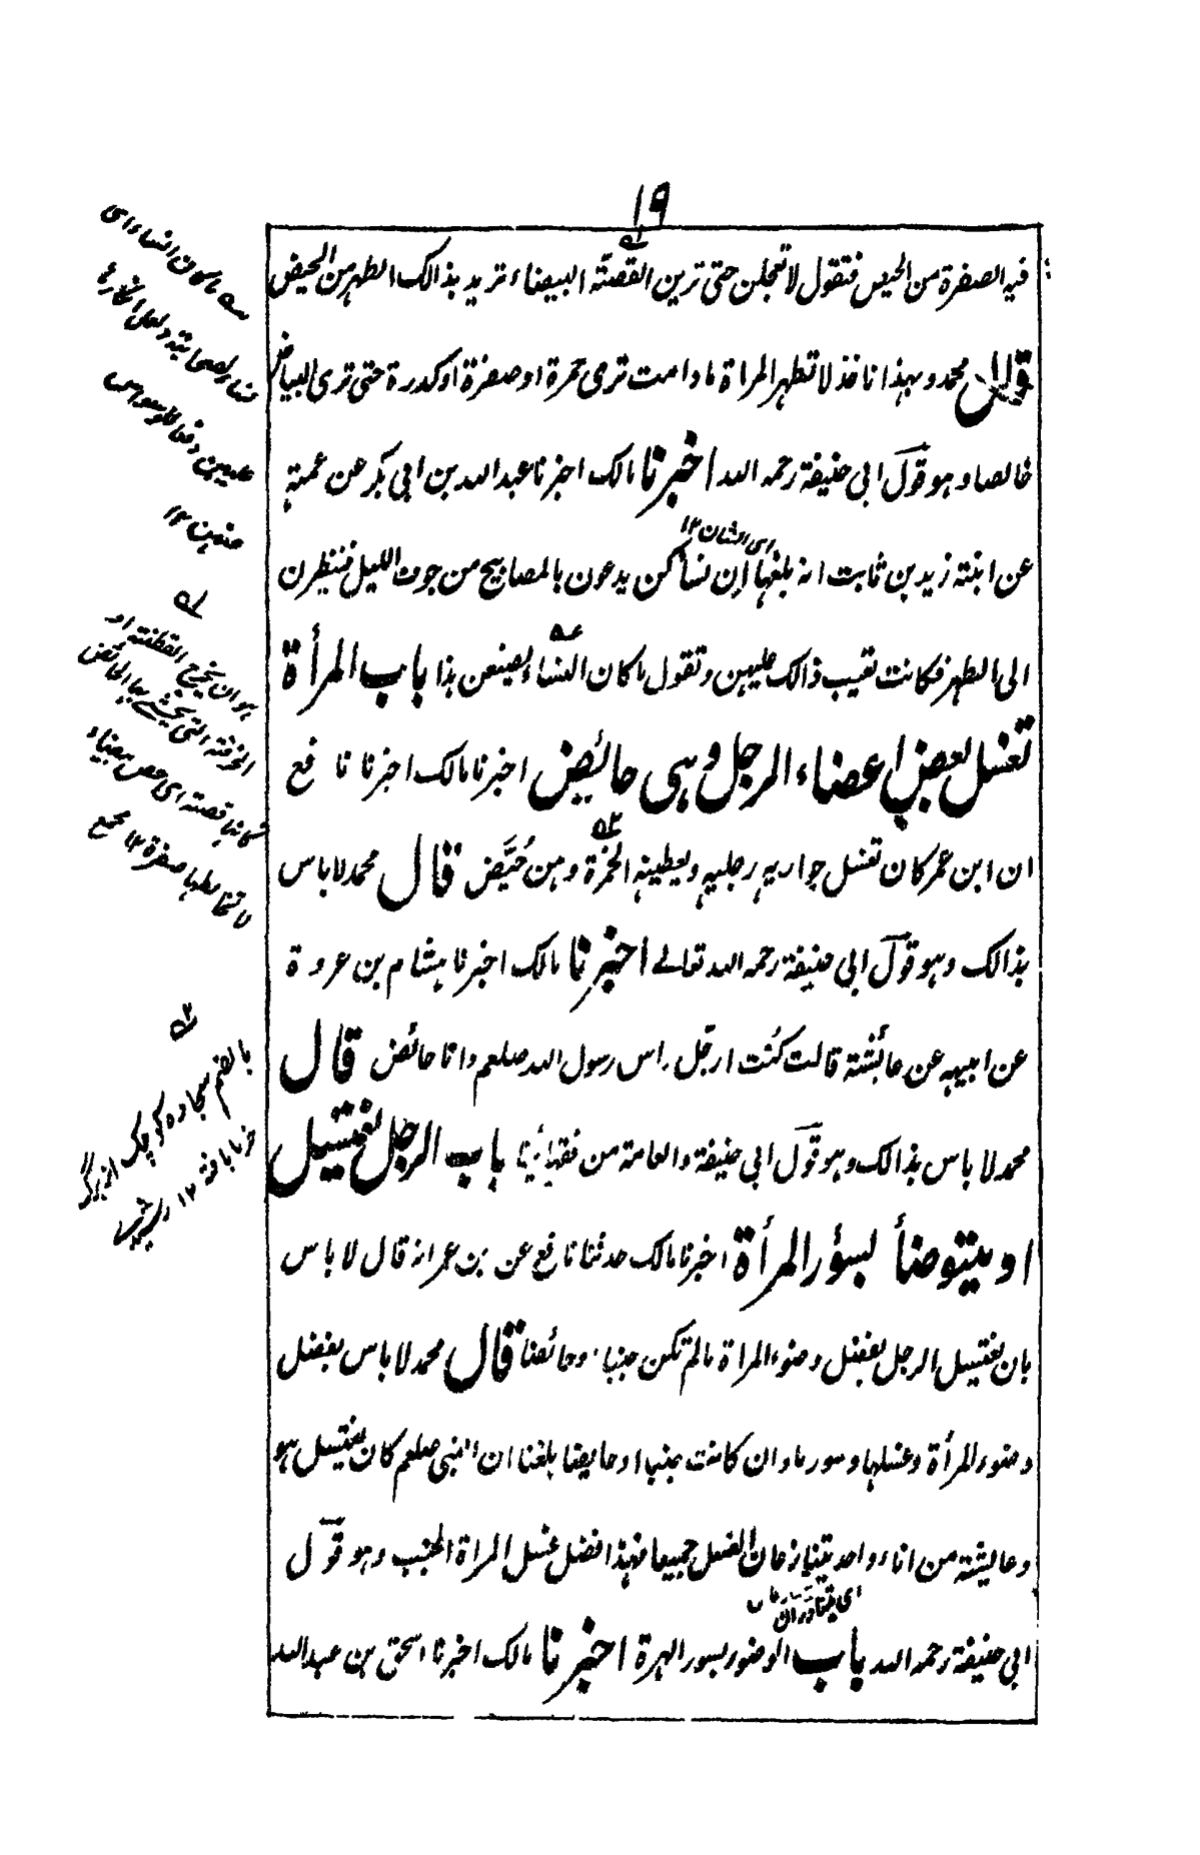 ١٩
فيه الصفرة من الحيض فتقول لا تعجلن حتى ترين القصّة البيضاء تريد بذالك الطهر من الحيض
قال محمد وبهذا ناخذ لا تطهر المراة مادامت ترى حمرة او صفرة او كدرة حتى ترى البياض
خالصا وهو قول ابى حنيفة رحمه الله اخبرنا مالك اخبرنا عبد الله بن ابى بكر عن عمته
اى الشان ١٢
عن ابنته زيد بن ثابت انه بلغها ان نساً كن يدعون بالمصابيح من جوف الليل فينظرن
الى الطهر فكانت تعيب ذالك عليهن وتقول ما كان النساء يصنعن هذا باب المرأة
تغسل بعض اعضاء الرجل وهى حائض اخبرنا مالك اخبرنا نافع
ان ابن عمر كان تغسل جواريه رجليه ويعطينه الخمرة وهن حُيَّض قال محمد لا باس
بذالك وهو قول ابى حنيفة رحمه الله تعالے اخبرنا مالك اخبرنا هشام بن عروة
عن ابيه عن عائشة قالت كُنت ارجّل راس رسول الله صلعم وانا حائض قال
محمد لا باس بذالك وهو قول ابى حنيفة والعامة من فقهائنا باب الرجل يغتسل
او يتوضأ بسؤر المرأة اخبرنا مالك حدثنا نافع عن بن عمر انه قال لا باس
بان يغتسل الرجل بفضل وضوء المراة مالم تكن جنبا وحائضا قال محمد لا باس بفضل
وضوء المرأة وغسلها وسورها وان كانت جنبا او حايضا بلغنا ان النبى صلعم كان يغتسل هو
وعايشة من اناء واحد يتنازعان الغسل جميعا فهذا فضل غسل المراة الجنب وهو قول
ابى حنيفة رحمه الله باب الوضوء بسور الهرة اخبرنا مالك اخبرنا اسحق بن عبد الله
ما كان النساء اى
عليهن دفعا للوسواس
منهن ١٢
هو ان يخرج القطنة او
الخرقة التى تحتشى بها الحائض
كانها قصته اى جص بيضاء
لا تخالطها صفرة ١٢ مجمع
بالضم سجاده كوچك از برگ
خرما بافته ١٢